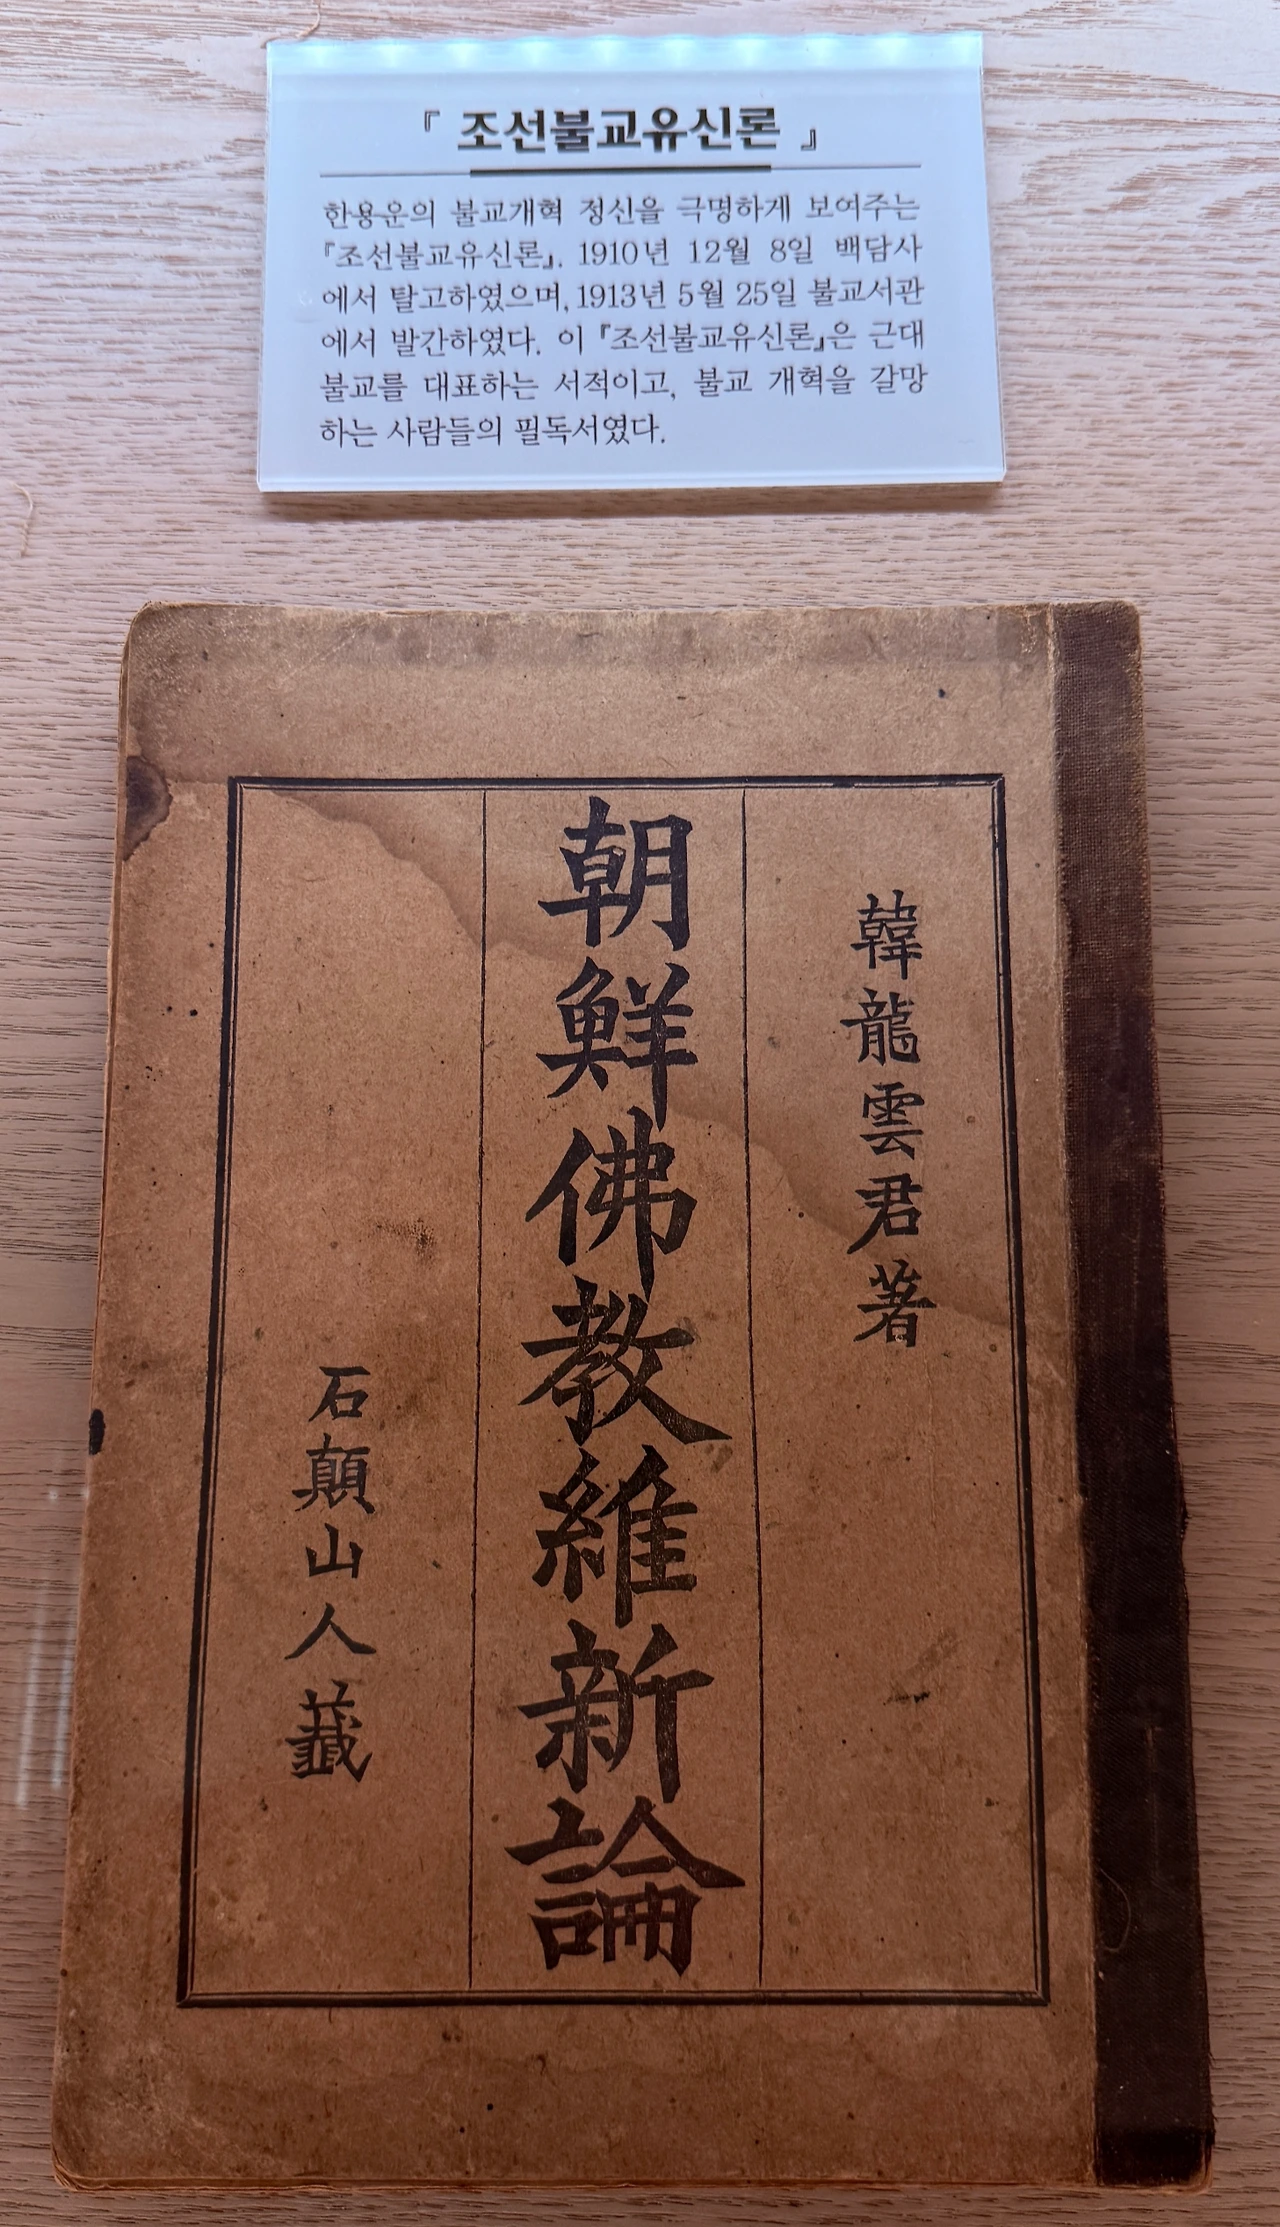 『 조선불교유신론 』
한용운의 불교개혁 정신을 극명하게 보여주는
『조선불교유신론』. 1910년 12월 8일 백담사
에서 탈고하였으며, 1913년 5월 25일 불교서관
에서 발간하였다. 이 『조선불교유신론』은 근대
불교를 대표하는 서적이고, 불교 개혁을 갈망
하는 사람들의 필독서였다.
韓龍雲君著
朝鮮佛教維新論
石顚山人